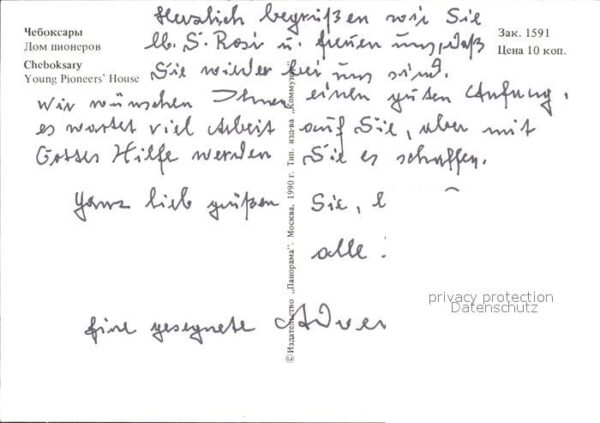 Чебоксары
Дом пионеров
Cheboksary
Young Pioneers' House
Зак. 1591
Цена 10 коп.
Herzlich begrüßen wir Sie
lb. S. Rosi u. freuen uns, daß
Sie wieder bei uns sind.
Wir wünschen Ihnen einen guten Anfang,
es wartet viel Arbeit auf Sie, aber mit
Gottes Hilfe werden Sie es schaffen.
Ganz lieb grüßen Sie,
alle
Eine gesegnete Adven
© Издательство „Панорама". Москва, 1990 г. Тип. изд-ва „Коммуна"
privacy protection
Datenschutz